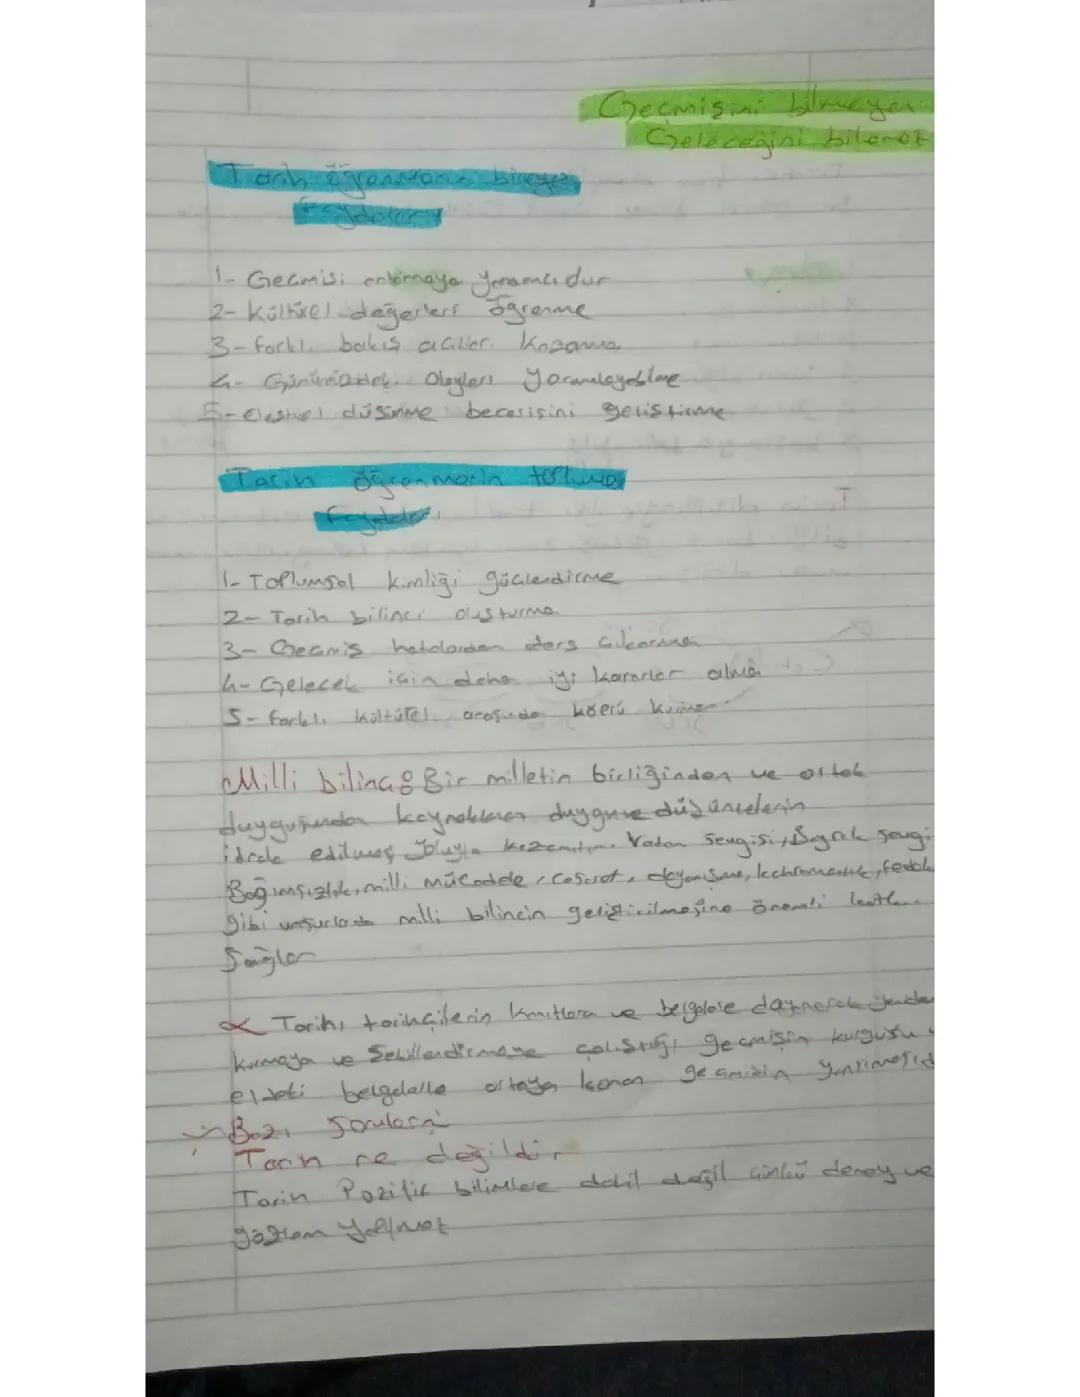 Geçmişini bilmeyen
Geleceğini bilemez
Tarih öğrenmenin bireye
Faydaları
1- Geçmişi anlamaya yardımcıdur
2- Kültürel değerleri öğrenme
3- farklı bakış açıları Kazanma
4- Günümüzdeki Olayları yorumlayabilme
5- Eleştirel düşünme becerisini geliştirme
Tarih öğrenmenin topluma
faydaları
1- Toplumsal kimliği güçlendirme
2- Tarih bilinci oluşturma
3- Geçmiş hatalardan ders çıkarma
4- Gelecek için daha iyi kararlar alma
5- farklı kültürel arasında köprü kurma
Milli bilinç: Bir milletin birliğinden ve ortak
duygusundan kaynaklanan duygu ve düşüncelerin
idrak edilmesi yoluyla kazanılır. Vatan sevgisi, Bayrak sevgi
Bağımsızlık, milli mücadele, cesaret, dayanışma, kahramanlık,
gibi unsurlarda milli bilincin geliştirilmesine önemli
Sağlar
Tarih, tarihçilerin kanıtlara ve belgelere dayanarak
kurmaya ve Şekillendirmeye çalıştığı geçmişin kurgusu
eldeki belgelerle ortaya konan geçmişin yansımasıd
Bazı soruları
Tarih ne değildir
Tarih Pozitif bilimlere dahil değil çünkü deney ve
gözlem yapılmaz